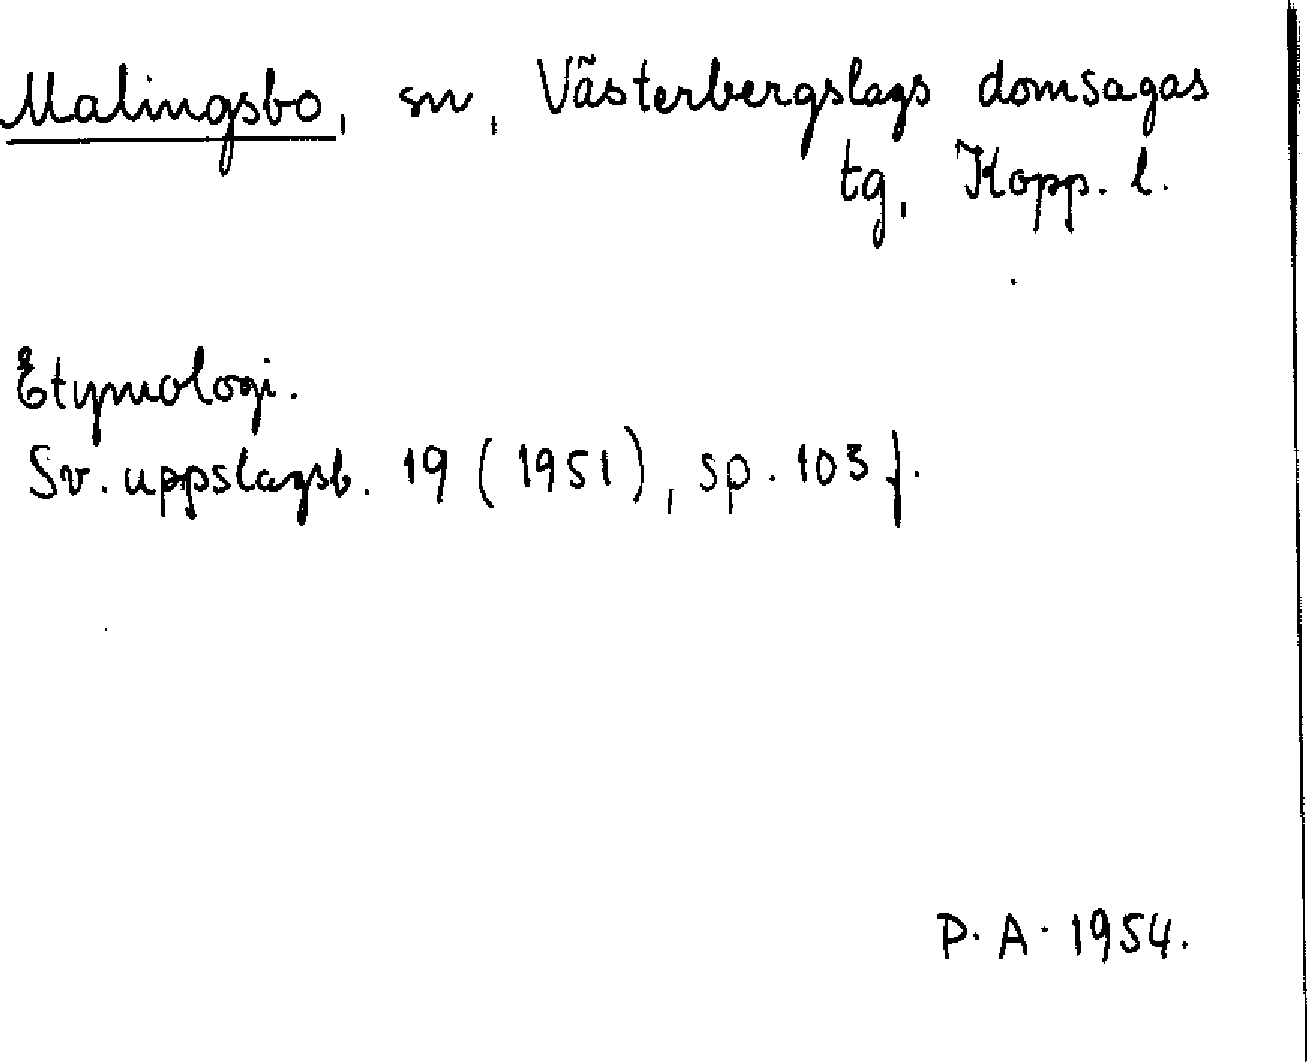 Malingsbo, sn, Västerbergslags domsagas
tg, Kopp. l.
Etymologi.
Sv. uppslagsb. 19 (1951), sp. 103 f.
P. A. 1954.